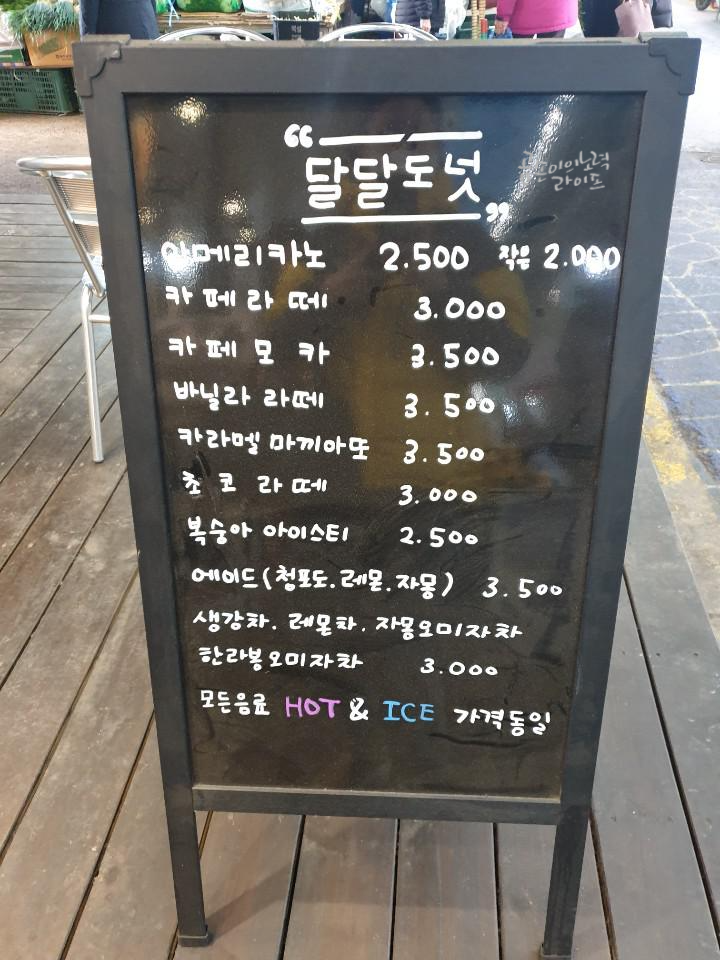 “달달도넛”
이의노력
라이프
아메리카노 2.500 작은 2.000
카페라떼 3.000
카페모카 3.500
바닐라 라떼 3.500
카라멜 마끼아또 3.500
초코라떼 3.000
복숭아 아이스티 2.500
에이드(청포도.레몬.자몽) 3.500
생강차. 레몬차. 자몽오미자차
한라봉오미자차 3.000
모든음료 HOT & ICE 가격동일